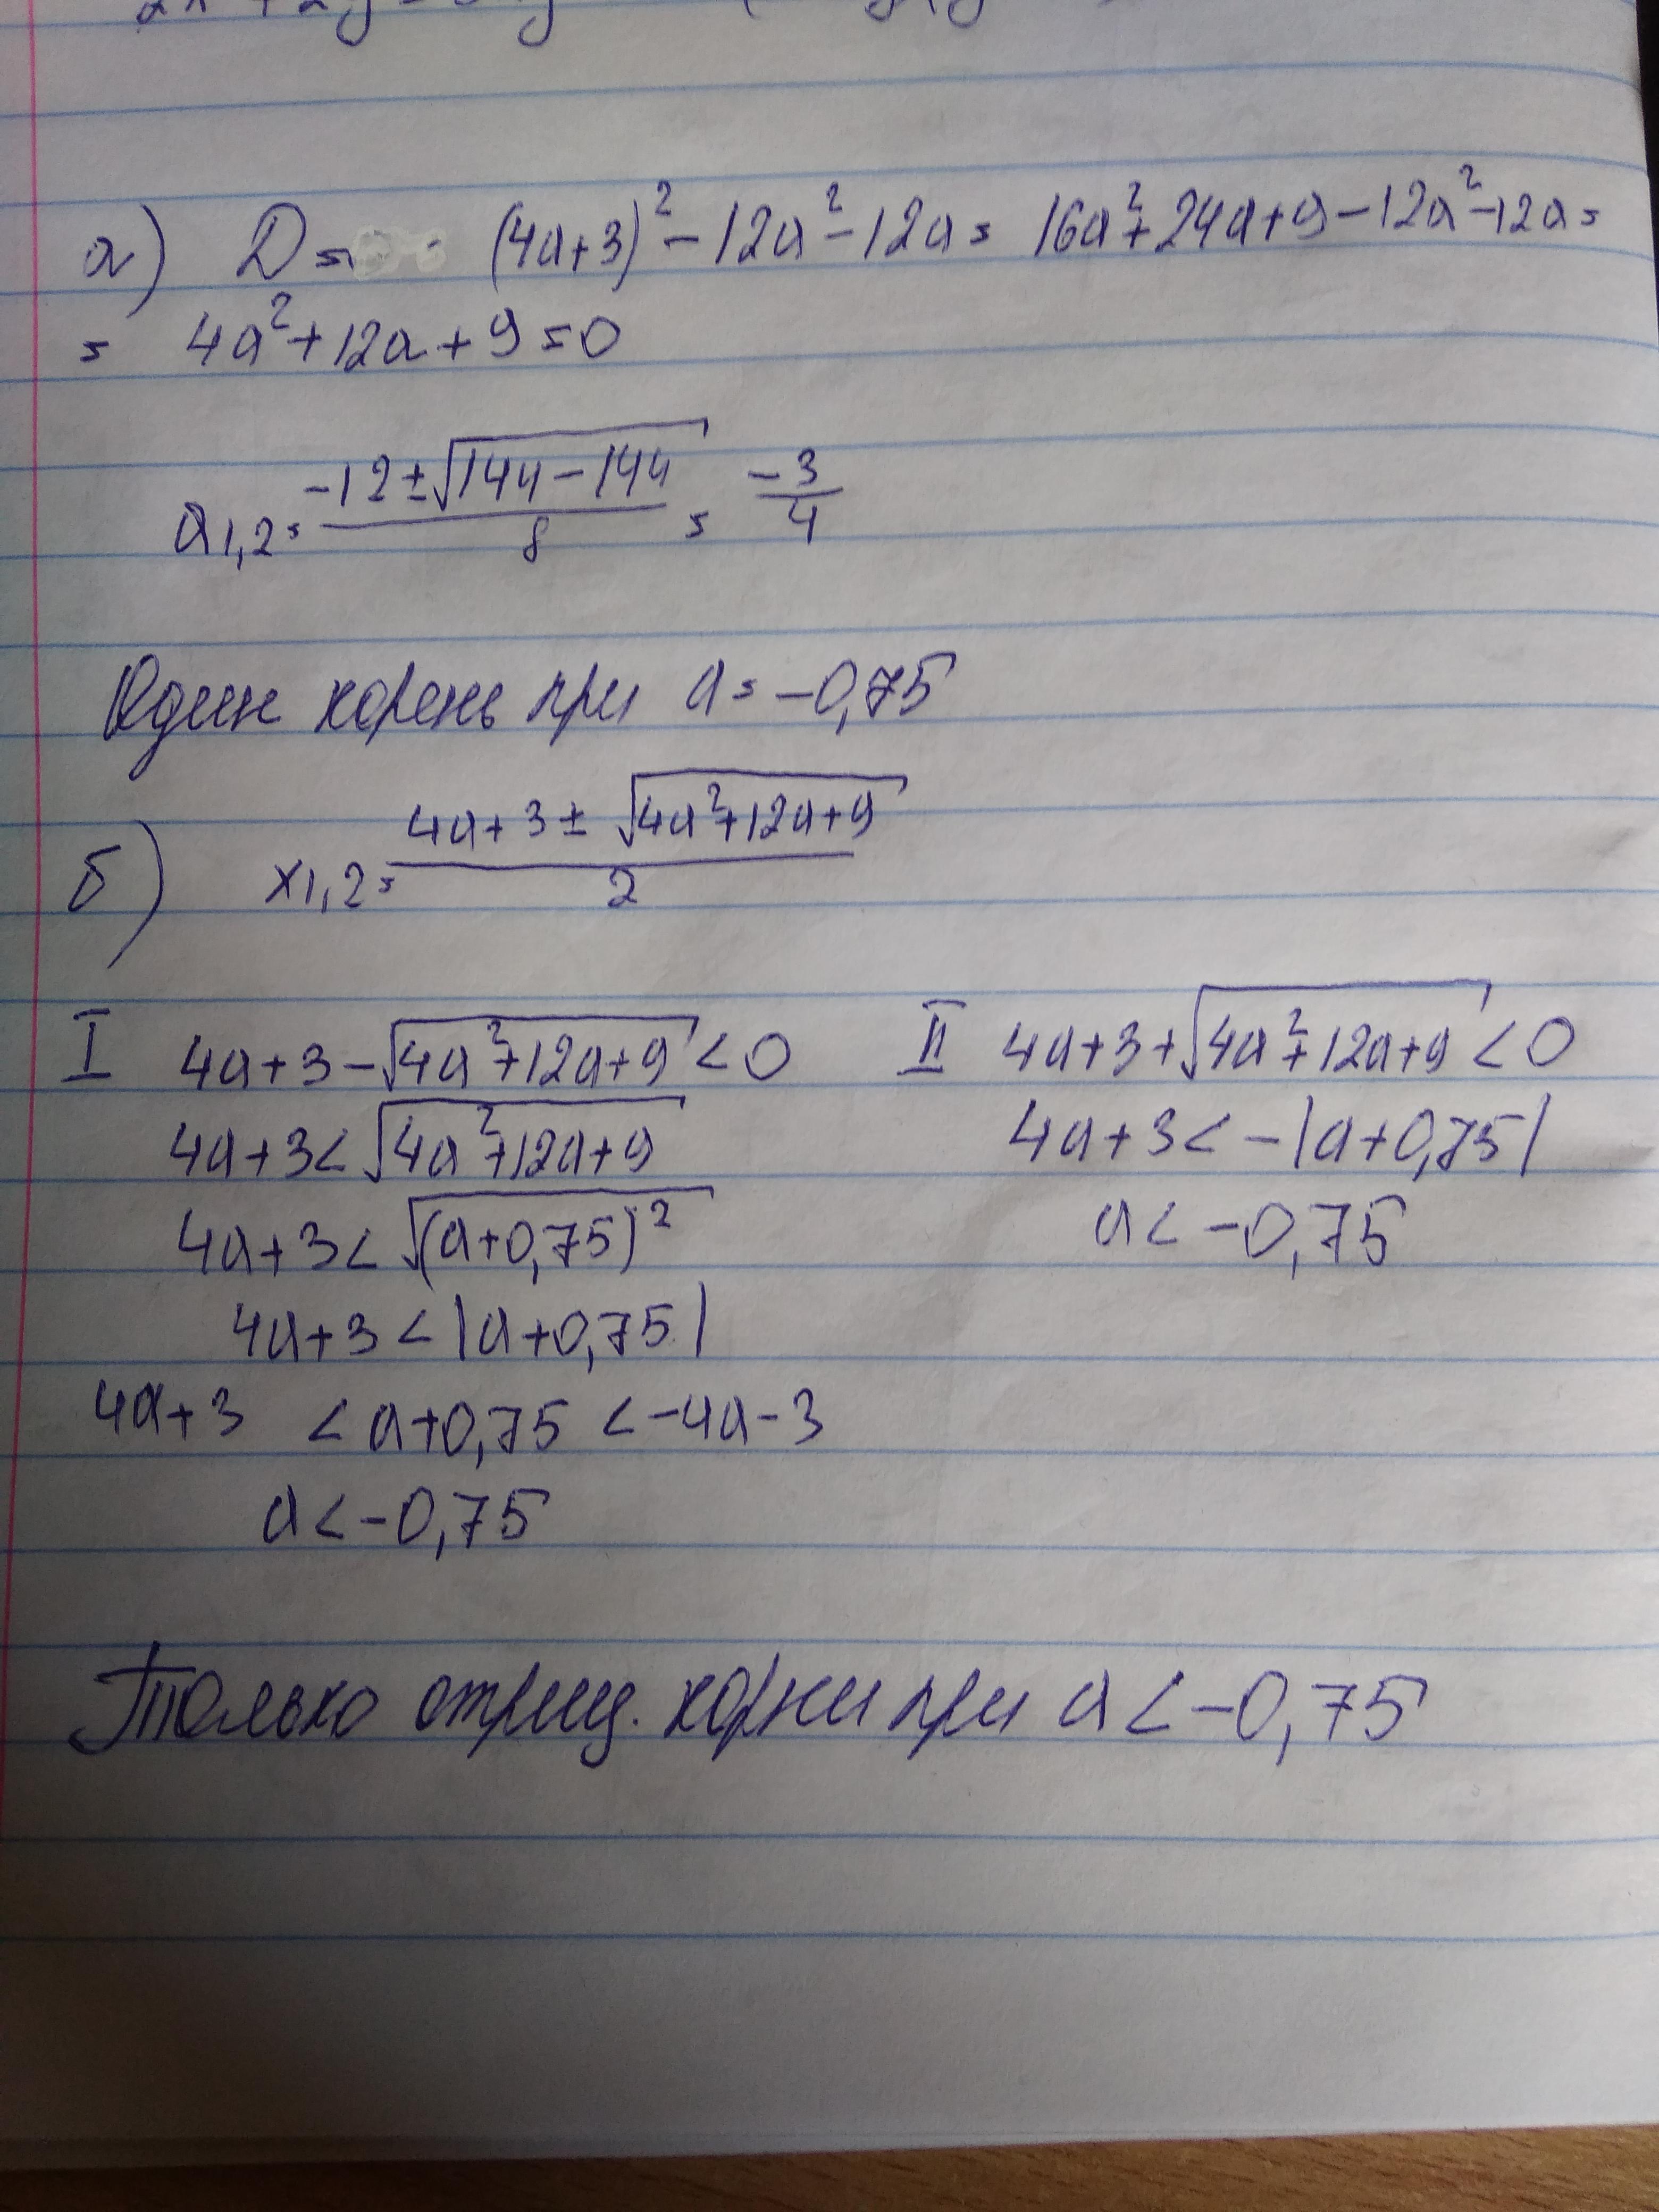 а) D = (4a+3)² - 12a² - 12a = 16a² + 24a + 9 - 12a² - 12a =
= 4a² + 12a + 9 = 0
a1,2 = (-12 ± √(144 - 144))/8 = -3/4
Один корень при a = -0,75
б) x1,2 = (4a + 3 ± √(4a² + 12a + 9))/2
I 4a + 3 - √(4a² + 12a + 9) < 0
4a + 3 < √(4a² + 12a + 9)
4a + 3 < √((a + 0,75)²)
4a + 3 < |a + 0,75|
4a + 3 < a + 0,75 < -4a - 3
a < -0,75
II 4a + 3 + √(4a² + 12a + 9) < 0
4a + 3 < -|a + 0,75|
a < -0,75
Только отриц. корни при a < -0,75